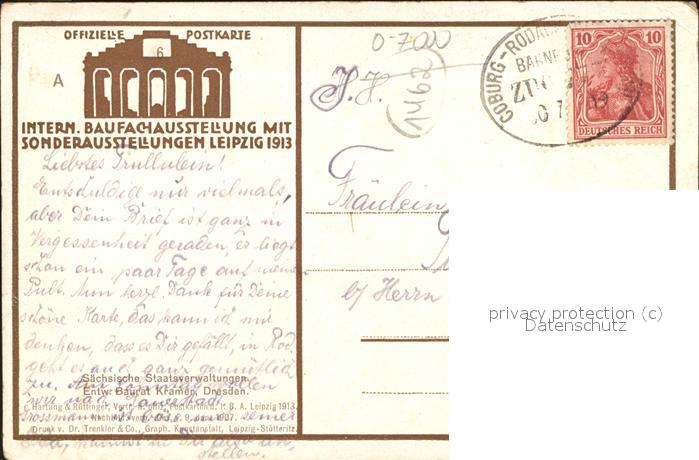 OFFIZIELLE POSTKARTE
6
A
INTERN. BAUFACHAUSSTELLUNG MIT
SONDERAUSSTELLUNGEN LEIPZIG 1913
Liebstes Trullulein!
Entschuldige nur vielmals,
aber Dein Brief ist ganz in
Vergessenheit geraden, er liegt
schon ein paar Tage auf meinem
Pult. Nun herzl. Dank für Deine
schöne Karte, das kann ich mir
denken, dass es Dir gefällt, in Rod
geht es auch ganz gemütlich
zu.
wir nach
seiner
kannst Dir also
stellen.
Sächsische Staatsverwaltungen.
Entw: Baurat Kramer, Dresden.
Hartung & Rüttinger, Vertr. d. offiz. Postkarten d. I. B. A. Leipzig 1913.
Druck v. Dr. Trenkler & Co., Graph. Kunstanstalt, Leipzig-Stötteritz.
0-700
J. H.
Fräulein
b/ Herrn
COBURG-RODACH
BAHNPOST
ZUG
10 10
DEUTSCHES REICH
privacy protection (c)
Datenschutz